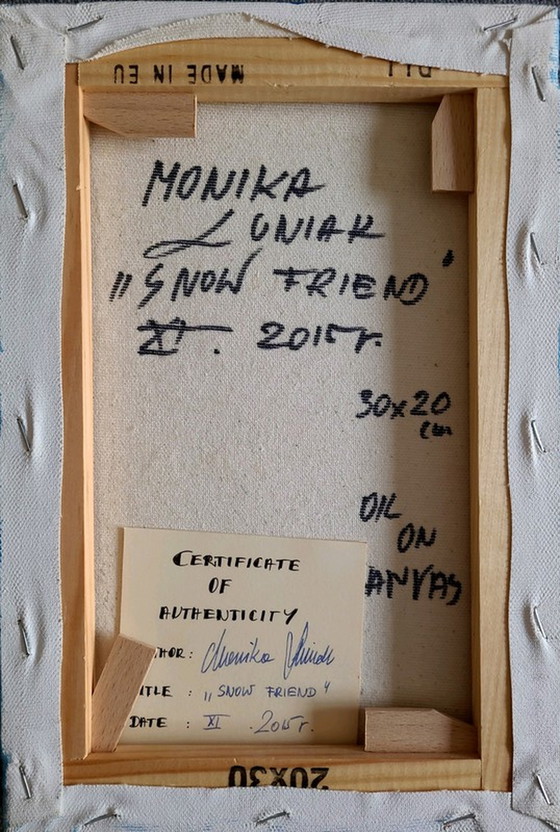 MADE IN EU
MONIKA
LUNIAK
„SNOW FRIEND"
XI. 2015r.
30x20
cm
OIL
ON
CANVAS
CERTIFICATE
OF
AUTHENTICITY
THOR: Monika Luniak
ITLE : „SNOW FRIEND"
DATE : XI .2015r.
20X30